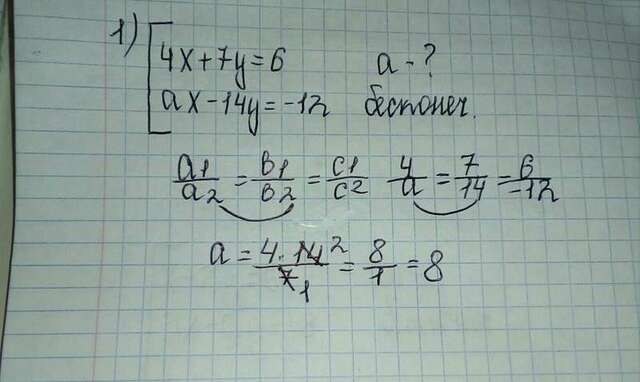 1) 4x+7y=6 a-?
ax-14y=-12 бесконеч.
a1/a2 = b1/b2 = c1/c2 4/a = 7/14 = 6/-12
a = 4·14 2/7 1 = 8/1 = 8